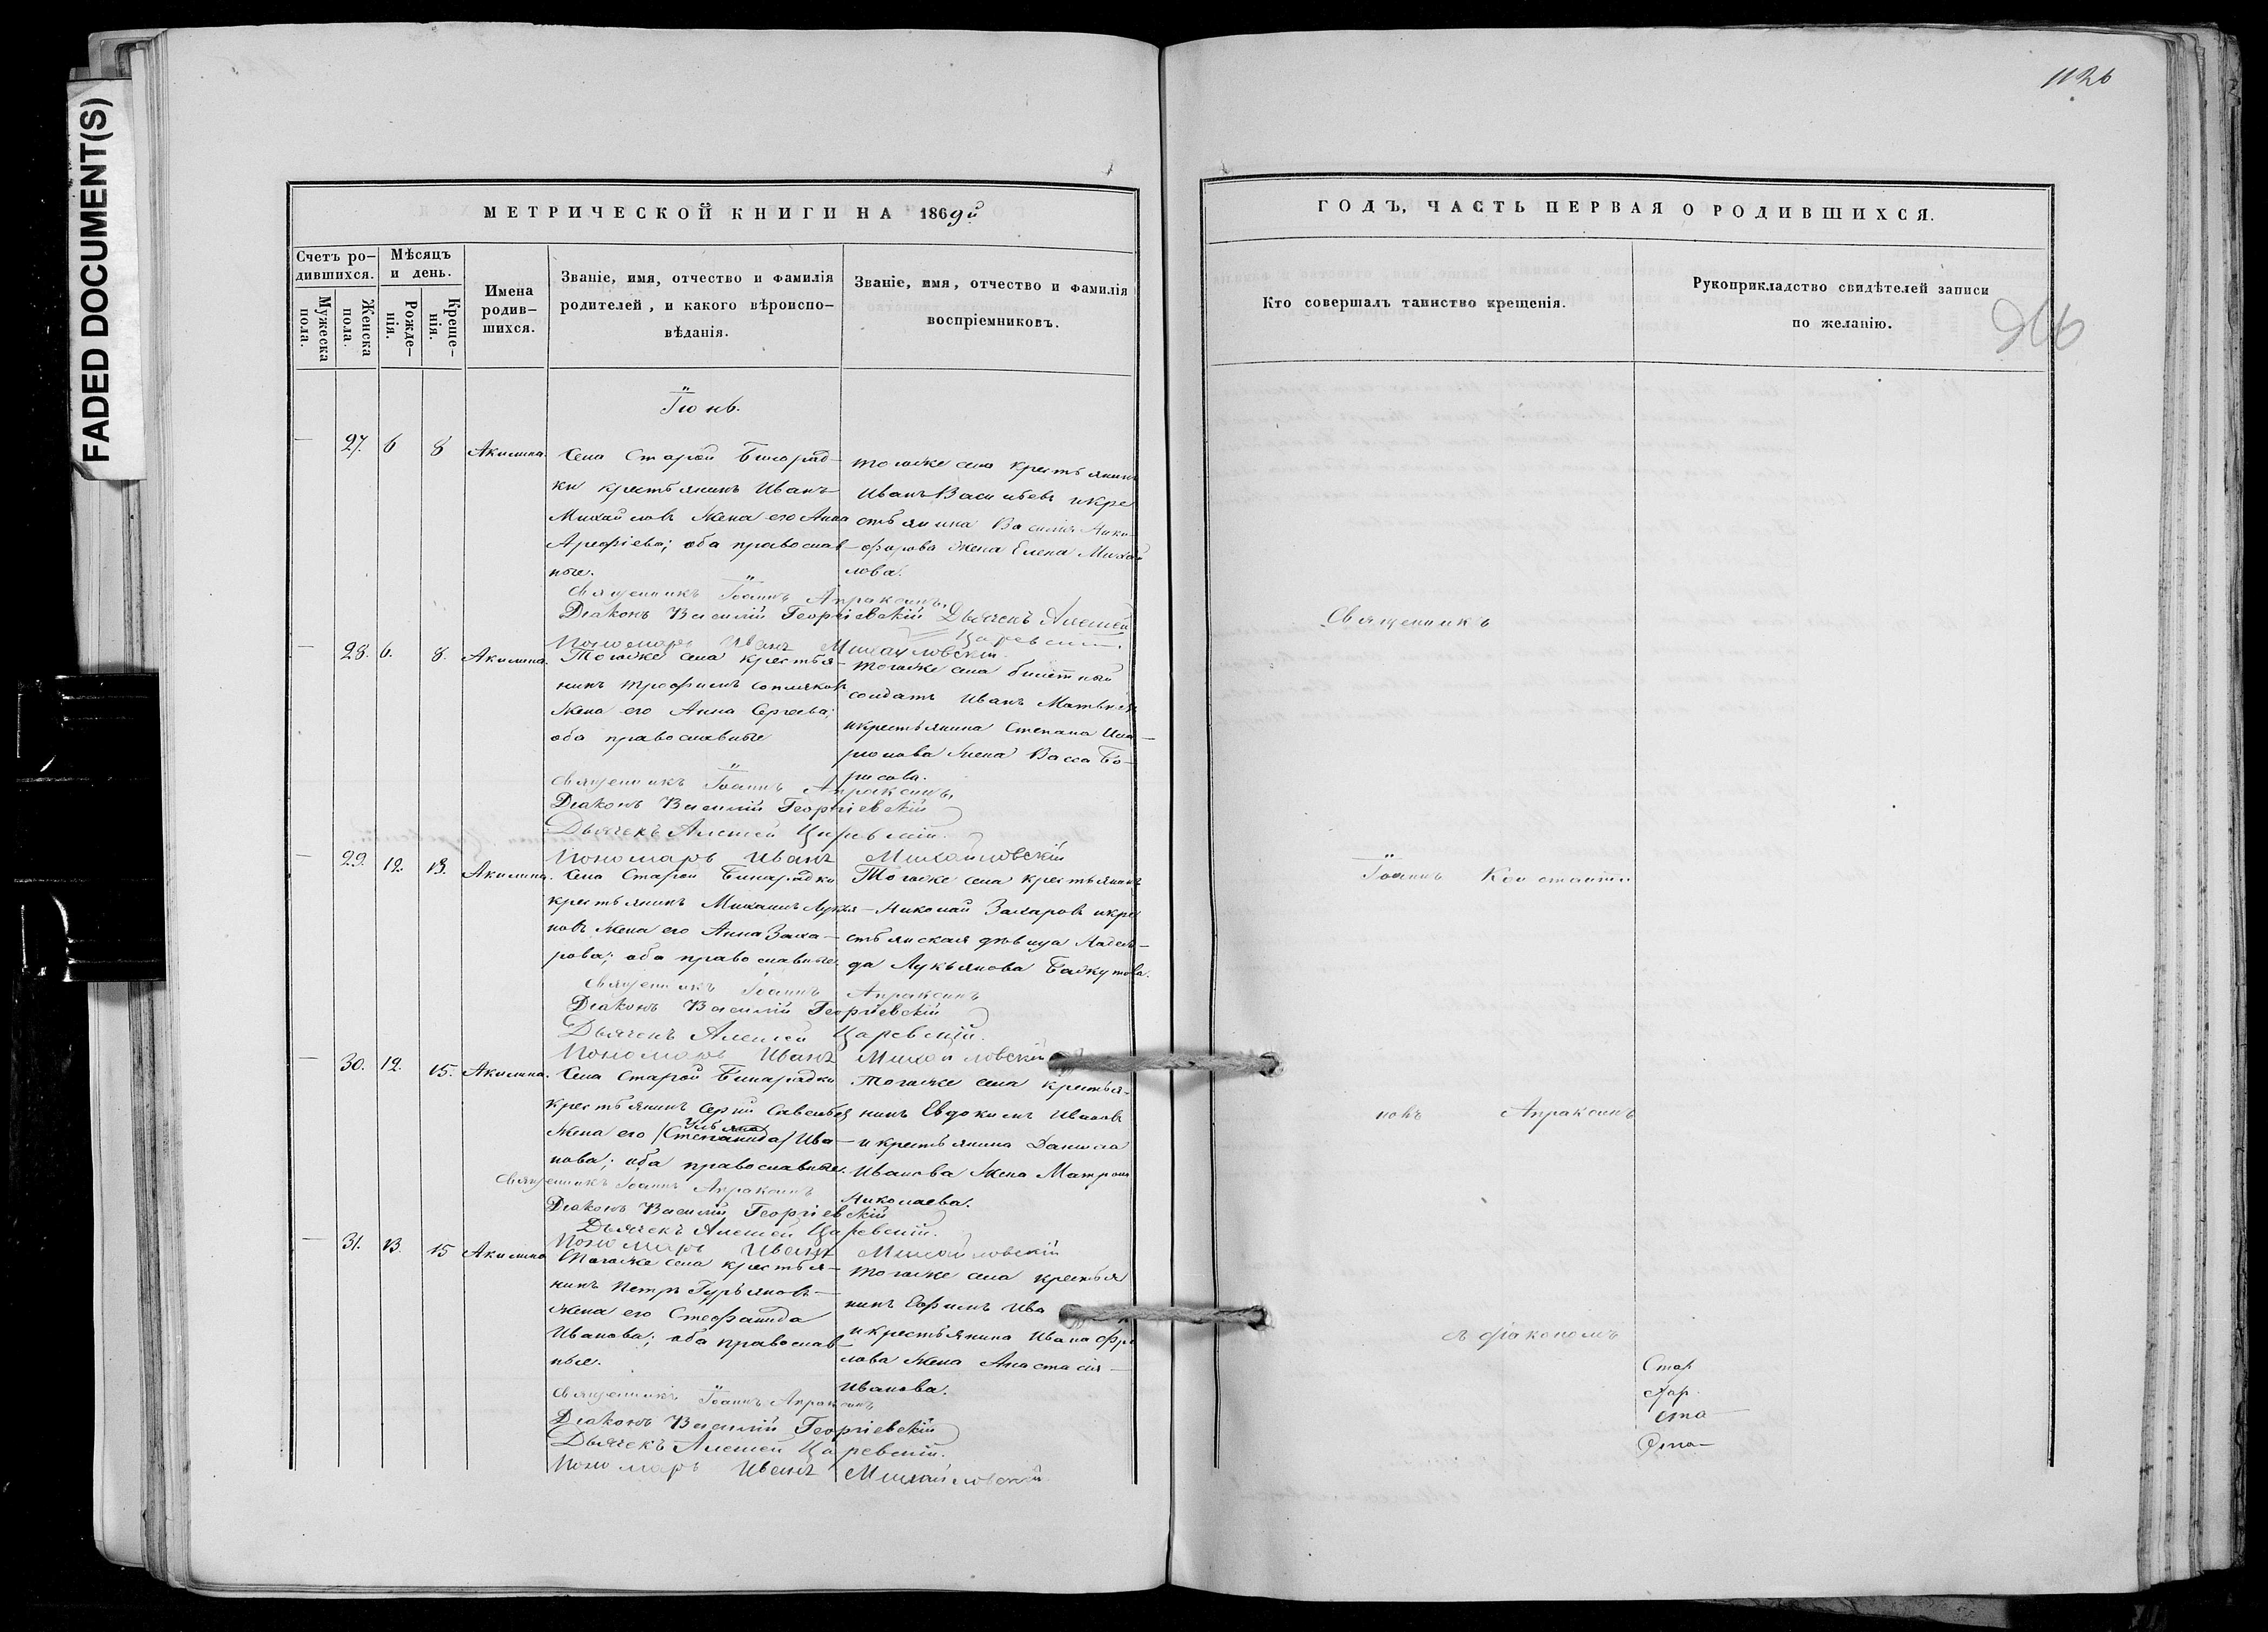 FADED DOCUMENT(S)
1126
МЕТРИЧЕСКОЙ КНИГИ НА 1869й
Счетъ ро-
дившихся.
Мужеска
пола.
Женска
пола.
Мѣсяцъ
и день.
Рожде-
нія.
Креще-
нія.
Имена
родив-
шихся.
Званіе, имя, отчество и фамилія
родителей, и какого вѣроиспо-
вѣданія.
Званіе, имя, отчество и фамилія
воспріемниковъ.
Іюнь.
— 27. 6 8 Акилина.
Села Старой Бинорад-
ки крестьянинъ Иванъ
Михайловъ жена его Анна
Арефіева; оба православ-
ные.
тогоже села крестьянинъ
Иванъ Васильевъ и кре
стьянина Василія Ники-
форова жена Елена Михай
лова.
Священникъ Іоаннъ Апраксинъ.
Діаконъ Василій Георгіевскій Дьячекъ Алексей
Царевскій.
Пономарь Иванъ Михайловскій
— 28. 6. 8. Акилина.
Тогоже села крестья-
нинъ Трофимъ
жена его Анна Сергеева;
оба православные
тогоже села билетный
солдатъ Иванъ
и крестьянина Степана Ила-
ріонова жена Васса Бо-
рисова.
Священникъ Іоаннъ Апраксинъ.
Діаконъ Василій Георгіевскій
Дьячекъ Алексей Царевскій.
Пономарь Иванъ Михайловскій
— 29. 12. 13. Акилина.
Села Старой Бинарадки
крестьянинъ Михаилъ Лукья-
новъ жена его Анна Заха-
рова; оба православные.
Тогоже села крестьянинъ
Николай Захаровъ и кре
стьянская дѣвица Надеж-
да Лукьянова
Священникъ Іоаннъ Апраксинъ
Діаконъ Василій Георгіевскій
Дьячекъ Алексей Царевскій.
Пономарь Иванъ Михайловскій
— 30. 12. 15. Акилина.
Села Старой Бинарадки
крестьянинъ Сергій Савельевъ
Ульяна
жена его (Степанида) Ива-
нова; оба православные.
тогоже села крестья-
нинъ Евдокимъ Ивановъ
и крестьянина Данила
Иванова жена Матрона
Николаева.
Священникъ Іоаннъ Апраксинъ
Діаконъ Василій Георгіевскій
Дьячекъ Алексей Царевскій.
Пономарь Иванъ Михайловскій
— 31. 13. 15 Акилина
Тогоже села крестья-
нинъ Петръ Гурьяновъ
жена его Стефанида
Иванова; оба православ-
ные.
тогоже села крестья
нинъ Ефимъ Ива
и крестьянина Ивана Фро
лова жена Анастасія
Иванова.
Священникъ Іоаннъ Апраксинъ
Діаконъ Василій Георгіевскій
Дьячекъ Алексей Царевскій.
Пономарь Иванъ Михайловскій
ГОДЪ, ЧАСТЬ ПЕРВАЯ О РОДИВШИХСЯ.
Кто совершалъ таинство крещенія.
Рукоприкладство свидѣтелей записи
по желанію.
Священникъ
Іоаннъ Константи
новъ Апраксинъ
съ діакономъ